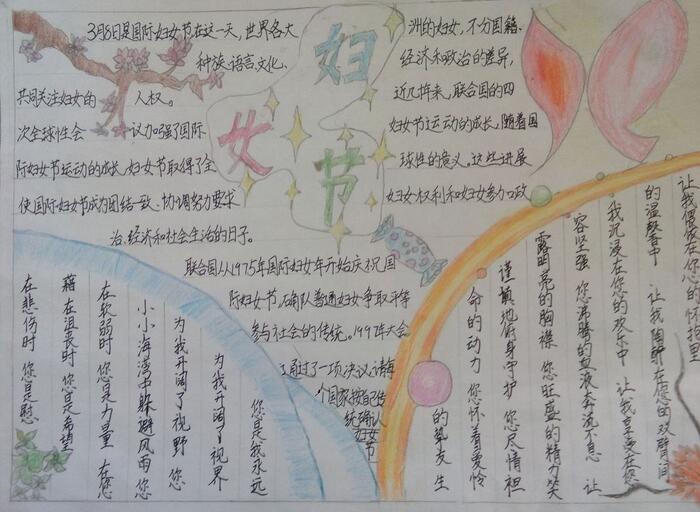 妇
女
节
3月8日是国际妇女节在这一天,世界各大
洲的妇女,不分国籍、
种族、语言、文化、
经济和政治的差异,
共同关注妇女的
人权。
近几十年来,联合国的四
次全球性会
议加强了国际
妇女节运动的成长,随着国
际妇女节运动的成长,妇女节取得了全
球性的意义。这些进展
使国际妇女节成为团结一致、协调努力要求
妇女权利和妇女参加政
治、经济和社会生活的日子。
联合国从1975年国际妇女年开始庆祝国
际妇女节,确认普通妇女争取平等
参与社会的传统。1997年大会
通过了一项决议,请每
个国家按自己传
统确认
妇女
节
您是我永远
的挚友生
为我开阔了视界
为我开阔了视野 您
小小海湾中躲避风雨 您
在软弱时 您是力量 在您
藉 在沮丧时 您是希望
在悲伤时 您是慰
让我偎依在您的怀抱里
的温馨中 让我陶醉在您的双臂间
我沉浸在您的欢乐中 让我享受在您
容坚强 您沸腾的血液奔流不息 让
露明亮的胸襟 您旺盛的精力笑
谨慎地俯身守护 您尽情袒
命的动力 您怀着爱怜